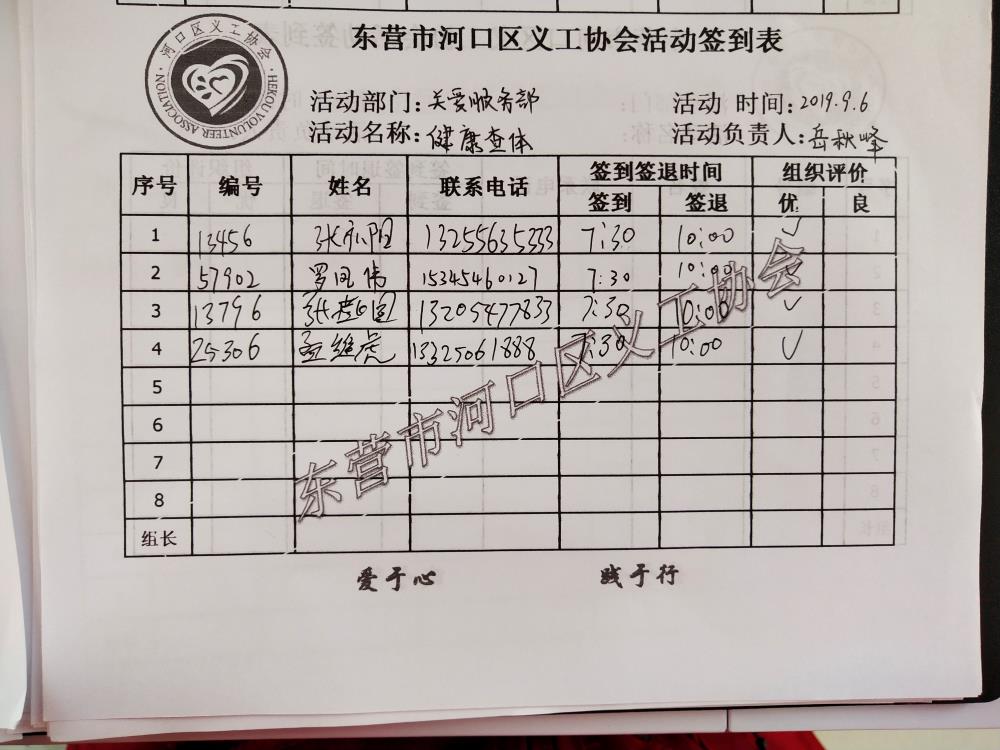 东营市河口区义工协会活动签到表
河口区义工协会
HEKOU VOLUNTEER ASSOCIATION
活动部门：关爱服务部 活动 时间：2019.9.6
活动名称：健康查体 活动负责人：岳秋峰
序号 编号 姓名 联系电话 签到签退时间 组织评价
签到 签退 优 良
1 13456 13255635333 7:30 10:00 √
2 57902 罗同伟 15345460127 7:30 10:00
3 13796 13205477833 7:30 10:00 √
4 25306 孟维虎 13325061888 7:30 10:00 √
5
6
7
8
组长
东营市河口区义工协会
爱于心 践于行